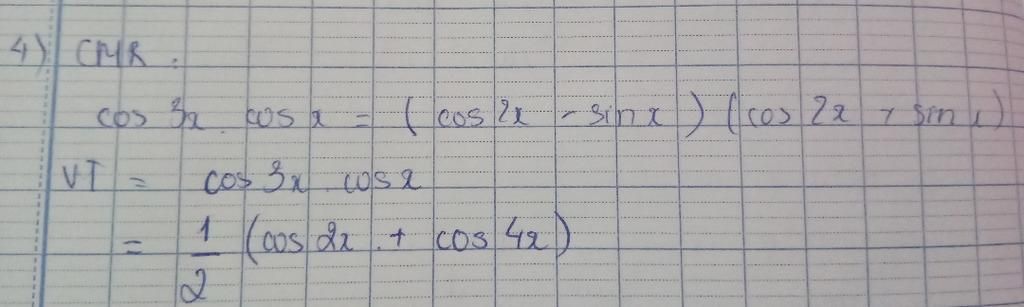 4) CMR:
cos 3x . cos x = ( cos 2x - sin x ) ( cos 2x + sin x )
VT = cos 3x . cos x
= 1/2 (cos 2x + cos 4x)